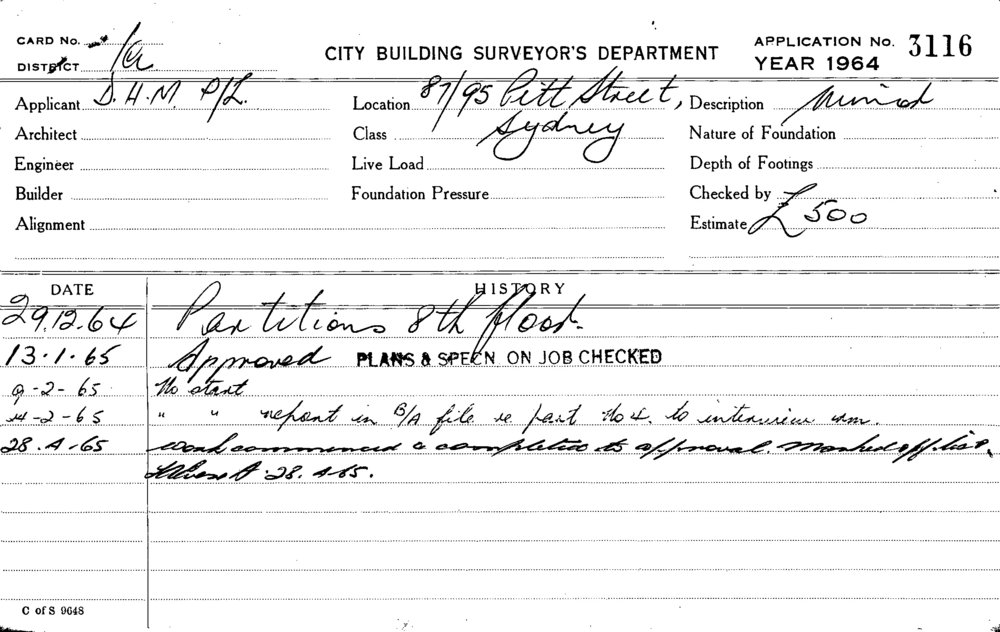 CARD No.
CITY BUILDING SURVEYOR'S DEPARTMENT
APPLICATION No. 3116
DISTRICT 1a
YEAR 1964
Applicant D.H.M. P/L.
Location 87/95 Pitt Street,
Sydney
Description Minor
Architect
Class
Nature of Foundation
Engineer
Live Load
Depth of Footings
Builder
Foundation Pressure
Checked by
Alignment
Estimate £500
DATE
HISTORY
29.12.64 Partitions 8th floor.
13.1.65 Approved PLANS & SPEC'N ON JOB CHECKED
9-2-65 No start
-2-65 " " report in B/A file re part No 4. to interview
28.4.65 Work commenced & completed to approval. Marked off list.
28.4.65.
C of S 9648